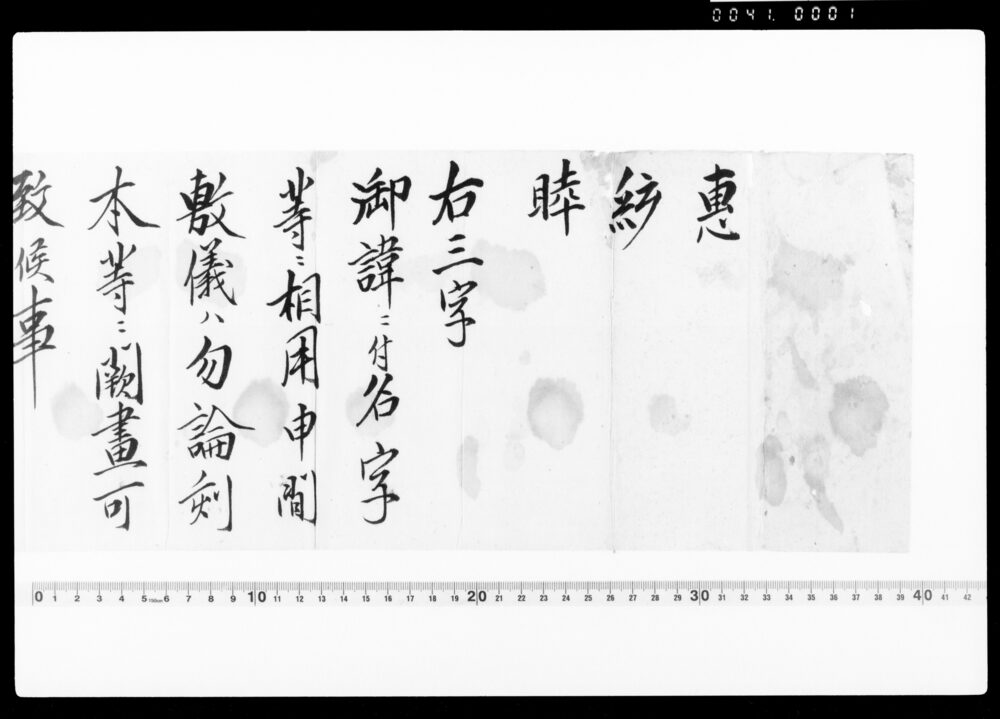 0041. 0001
惠
統
睦
右三字
御諱ニ付名字
等ニ相用申間
敷儀ハ勿論刻
本等ニ闕畫可
致候事
0 1 2 3 4 5 6 7 8 9 10 11 12 13 14 15 16 17 18 19 20 21 22 23 24 25 26 27 28 29 30 31 32 33 34 35 36 37 38 39 40 41 42